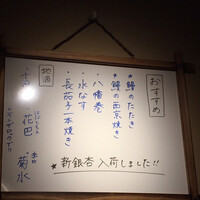 おすすめ
★鰹のたたき
★鰆の西京焼き
・八幡巻
・水なす
・長茄子一本焼き
地酒
・花巴
・菊水
★新銀杏入荷しました!!